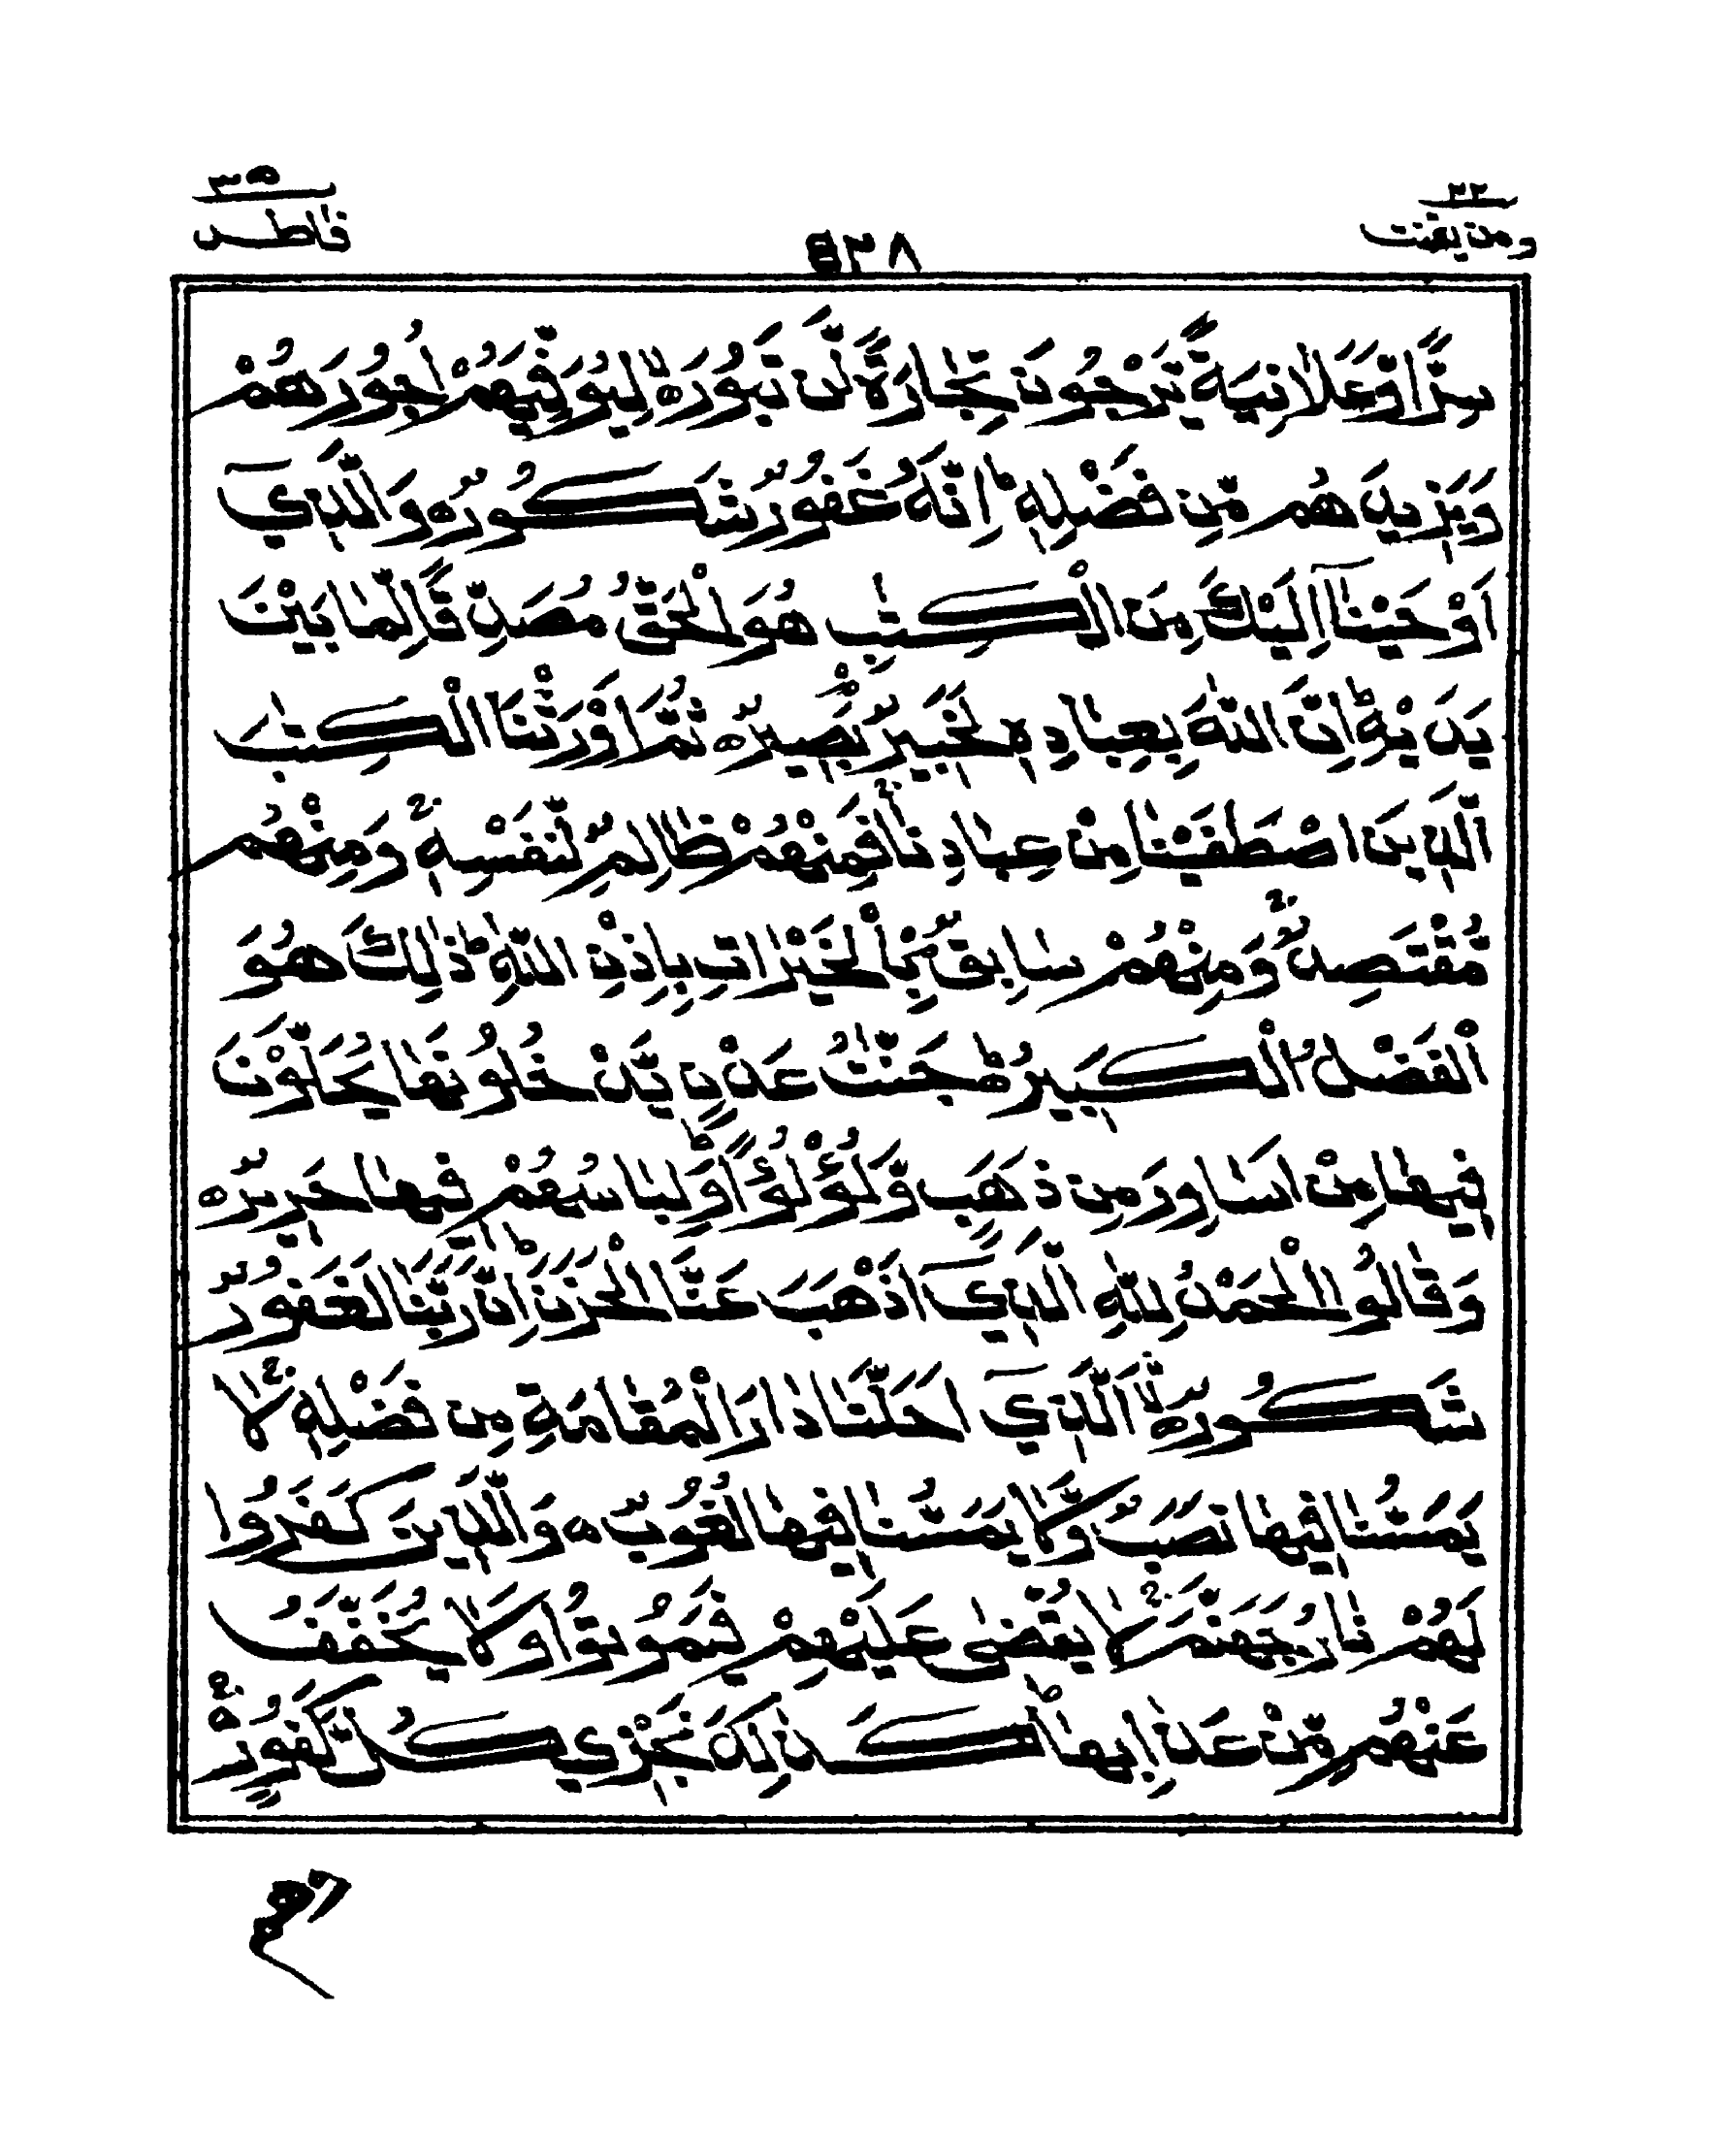 ٢٢
ومن يقنت
٥٣٨
٣٥
فاطر
سِرًّا وَّعَلَانِيَةً يَّرْجُونَ تِجَارَةً لَّن تَبُورَ ۙ لِيُوَفِّيَهُمْ أُجُورَهُمْ
وَيَزِيدَهُم مِّن فَضْلِهِ ۚ إِنَّهُ غَفُورٌ شَكُورٌ ۝ وَالَّذِي
أَوْحَيْنَا إِلَيْكَ مِنَ الْكِتٰبِ هُوَ الْحَقُّ مُصَدِّقًا لِّمَا بَيْنَ
يَدَيْهِ ۗ إِنَّ اللّٰهَ بِعِبَادِهِ لَخَبِيرٌ بَصِيرٌ ۝ ثُمَّ أَوْرَثْنَا الْكِتٰبَ
الَّذِينَ اصْطَفَيْنَا مِنْ عِبَادِنَا ۚ فَمِنْهُمْ ظَالِمٌ لِّنَفْسِهِ ۚ وَمِنْهُم
مُّقْتَصِدٌ ۚ وَمِنْهُمْ سَابِقٌ بِالْخَيْرَاتِ بِإِذْنِ اللّٰهِ ۗ ذٰلِكَ هُوَ
الْفَضْلُ الْكَبِيرُ ۝ جَنّٰتُ عَدْنٍ يَّدْخُلُونَهَا يُحَلَّوْنَ
فِيهَا مِنْ أَسَاوِرَ مِن ذَهَبٍ وَّلُؤْلُؤًا ۚ وَلِبَاسُهُمْ فِيهَا حَرِيرٌ ۝
وَقَالُوا الْحَمْدُ لِلّٰهِ الَّذِي أَذْهَبَ عَنَّا الْحَزَنَ ۗ إِنَّ رَبَّنَا لَغَفُورٌ
شَكُورٌ ۝ الَّذِي أَحَلَّنَا دَارَ الْمُقَامَةِ مِن فَضْلِهِ ۚ لَا
يَمَسُّنَا فِيهَا نَصَبٌ وَّلَا يَمَسُّنَا فِيهَا لُغُوبٌ ۝ وَالَّذِينَ كَفَرُوا
لَهُمْ نَارُ جَهَنَّمَ ۚ لَا يُقْضٰى عَلَيْهِمْ فَيَمُوتُوا وَلَا يُخَفَّفُ
عَنْهُم مِّنْ عَذَابِهَا ۗ كَذٰلِكَ نَجْزِي كُلَّ كَفُورٍ ۚ